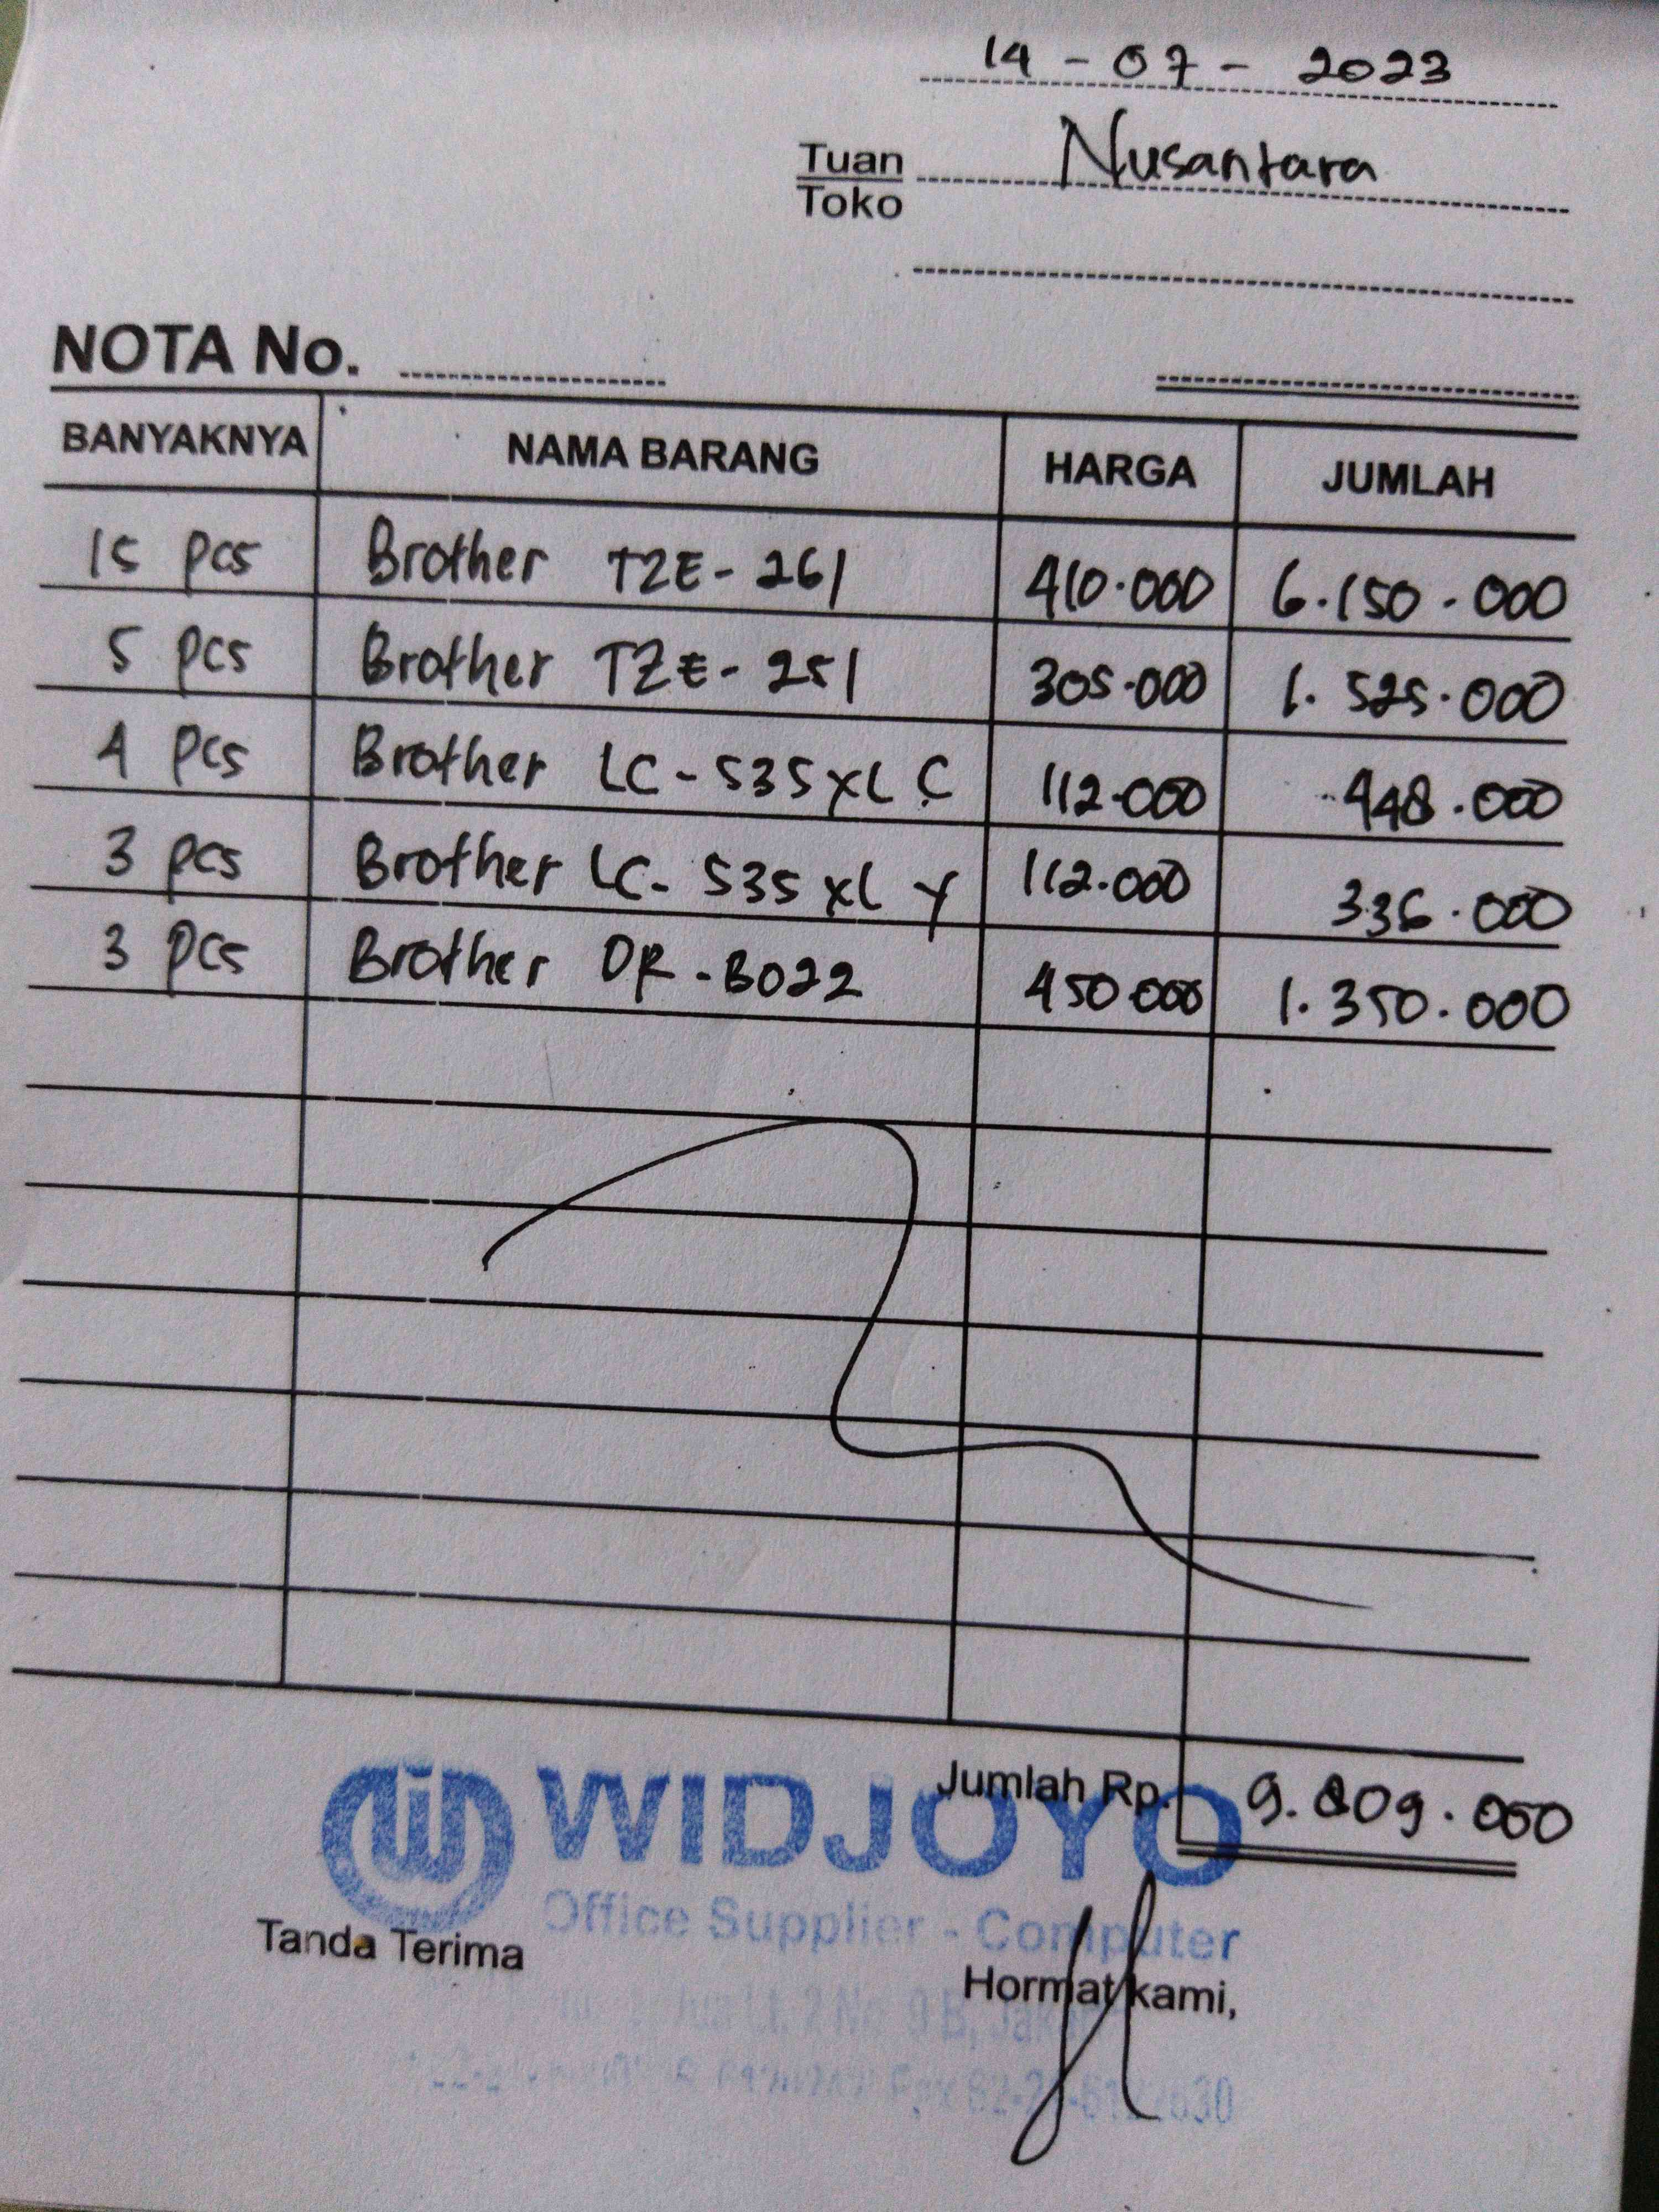 14 - 07 - 2023
Tuan Nusantara
Toko
NOTA No.
BANYAKNYA NAMA BARANG HARGA JUMLAH
15 pcs Brother TZE-261 410.000 6.150.000
5 pcs Brother TZE-251 305.000 1.525.000
4 pcs Brother LC-535XL C 112.000 448.000
3 pcs Brother LC-535XL Y 112.000 336.000
3 pcs Brother DR-B022 450.000 1.350.000
Jumlah Rp. 9.809.000
WIDJOYO
Office Supplier - Computer
Tanda Terima
Hormat kami,
Lt. 2 No. 9 B,